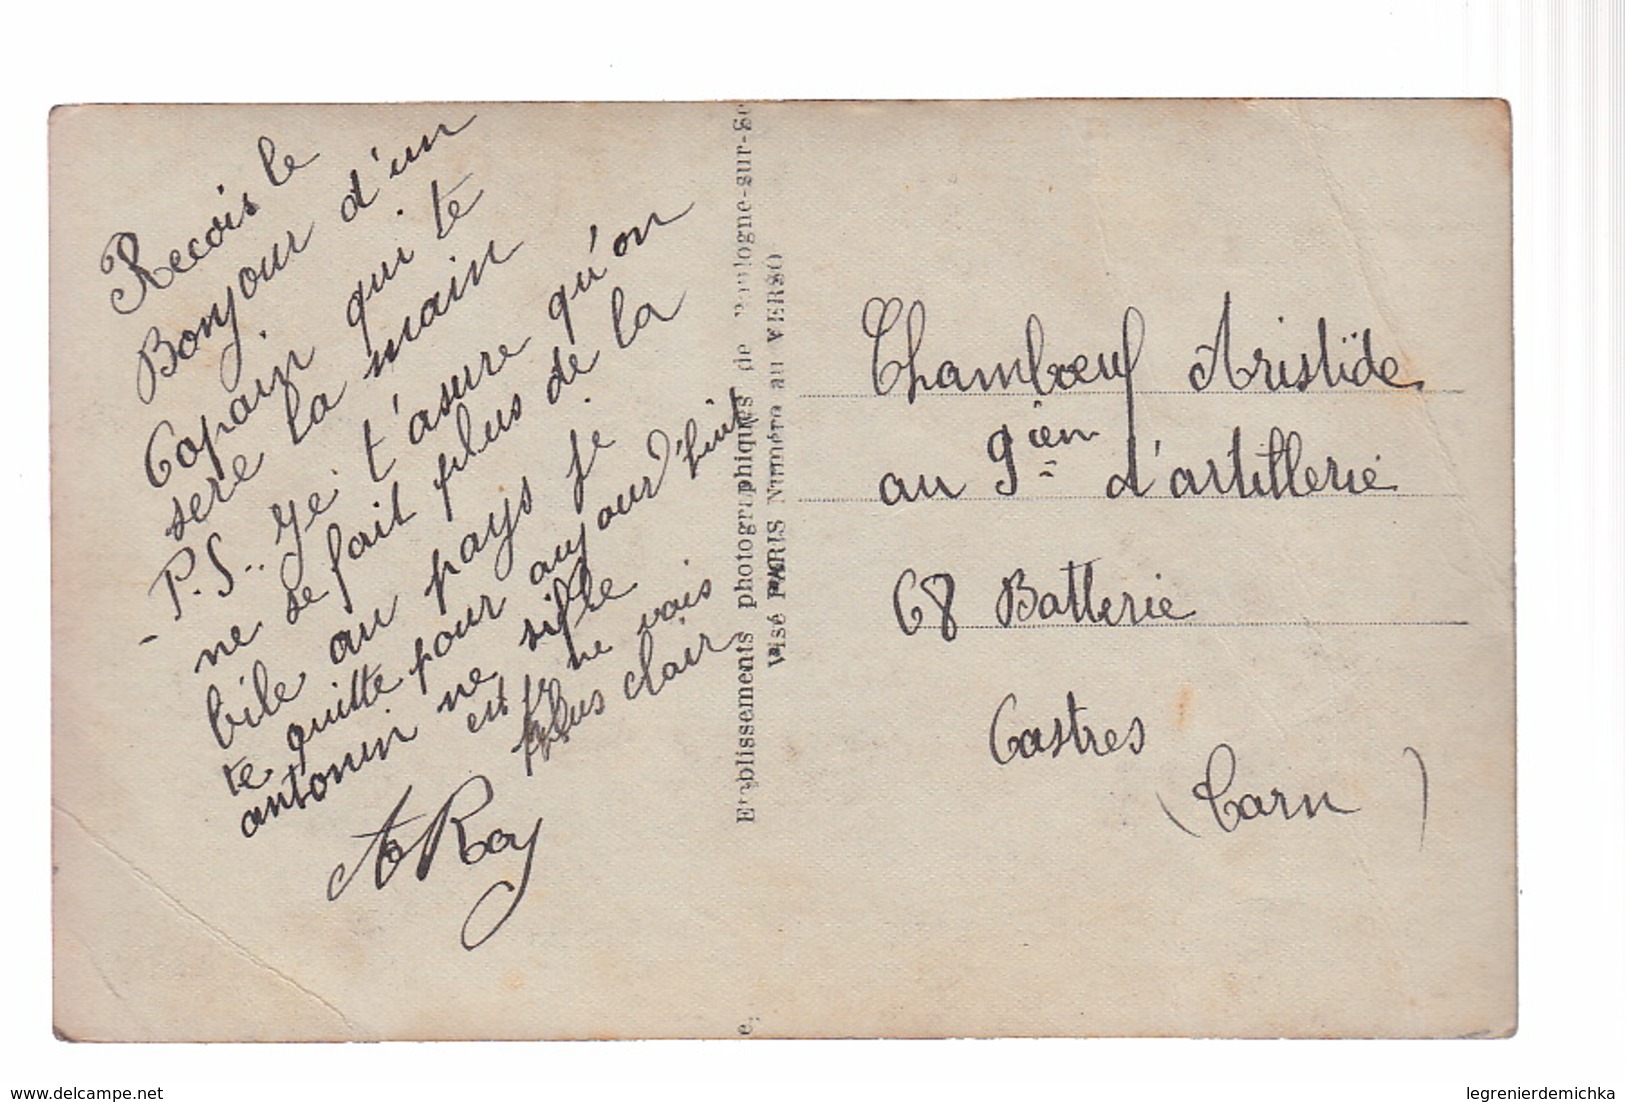 Recois le
Bonjour d'un
Copain qui te
sere la main
- P.S.. Je t'asure qu'on
ne se fait plus de la
bile au pays je
te quitte pour aujourd'hui
antonin ne sifle
est je ne vois
plus clair
A Roy
Etablissements photographiques de Boulogne-sur-Se
e,
Visé PARIS Numéro au VERSO
Chambœuf Aristide
au 9ien d'artillerie
68 Batterie
Castres
(Tarn)
www.delcampe.net
legrenierdemichka